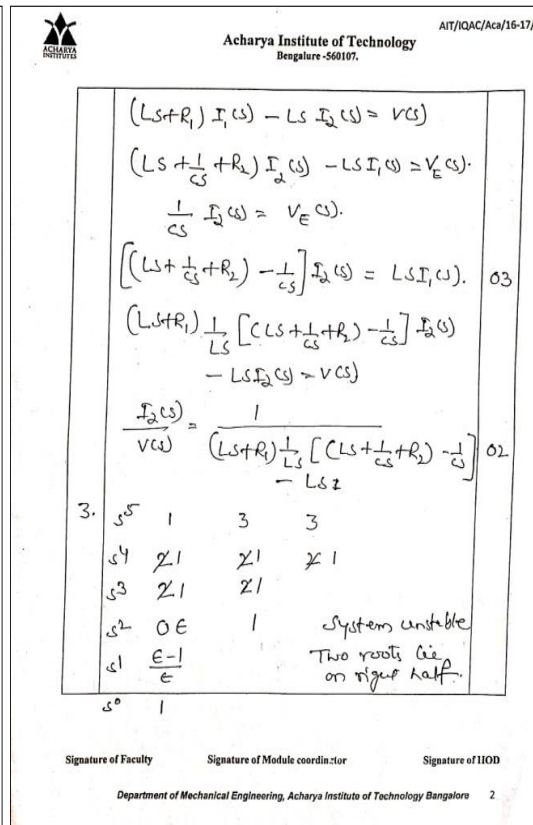 AIT/IQAC/Aca/16-17/
ACHARYA
INSTITUTES
Acharya Institute of Technology
Bengalure -560107.
(LS+R₁) I₁(s) – LS I₂(s) = V(s)
(LS + 1/CS + R₂) I₂(s) – LS I₁(s) = V_E(s).
1/CS I₂(s) = V_E(s).
[(LS + 1/CS + R₂) – 1/CS] I₂(s) = LS I₁(s). 03
(LS+R₁) 1/LS [(LS + 1/CS + R₂) – 1/CS] I₂(s)
– LS I₂(s) = V(s)
I₂(s)/V(s) = 1/((LS+R₁) 1/LS [(LS + 1/CS + R₂) – 1/CS] – LS 02
3. s⁵ 1 3 3
s⁴ 2 1 2 1 2 1
s³ 2 1 2 1
s² 0 ϵ 1 System unstable
s¹ (ϵ-1)/ϵ Two roots lie
on right half.
s⁰ 1
Signature of Faculty Signature of Module coordinator Signature of HOD
Department of Mechanical Engineering, Acharya Institute of Technology Bangalore 2